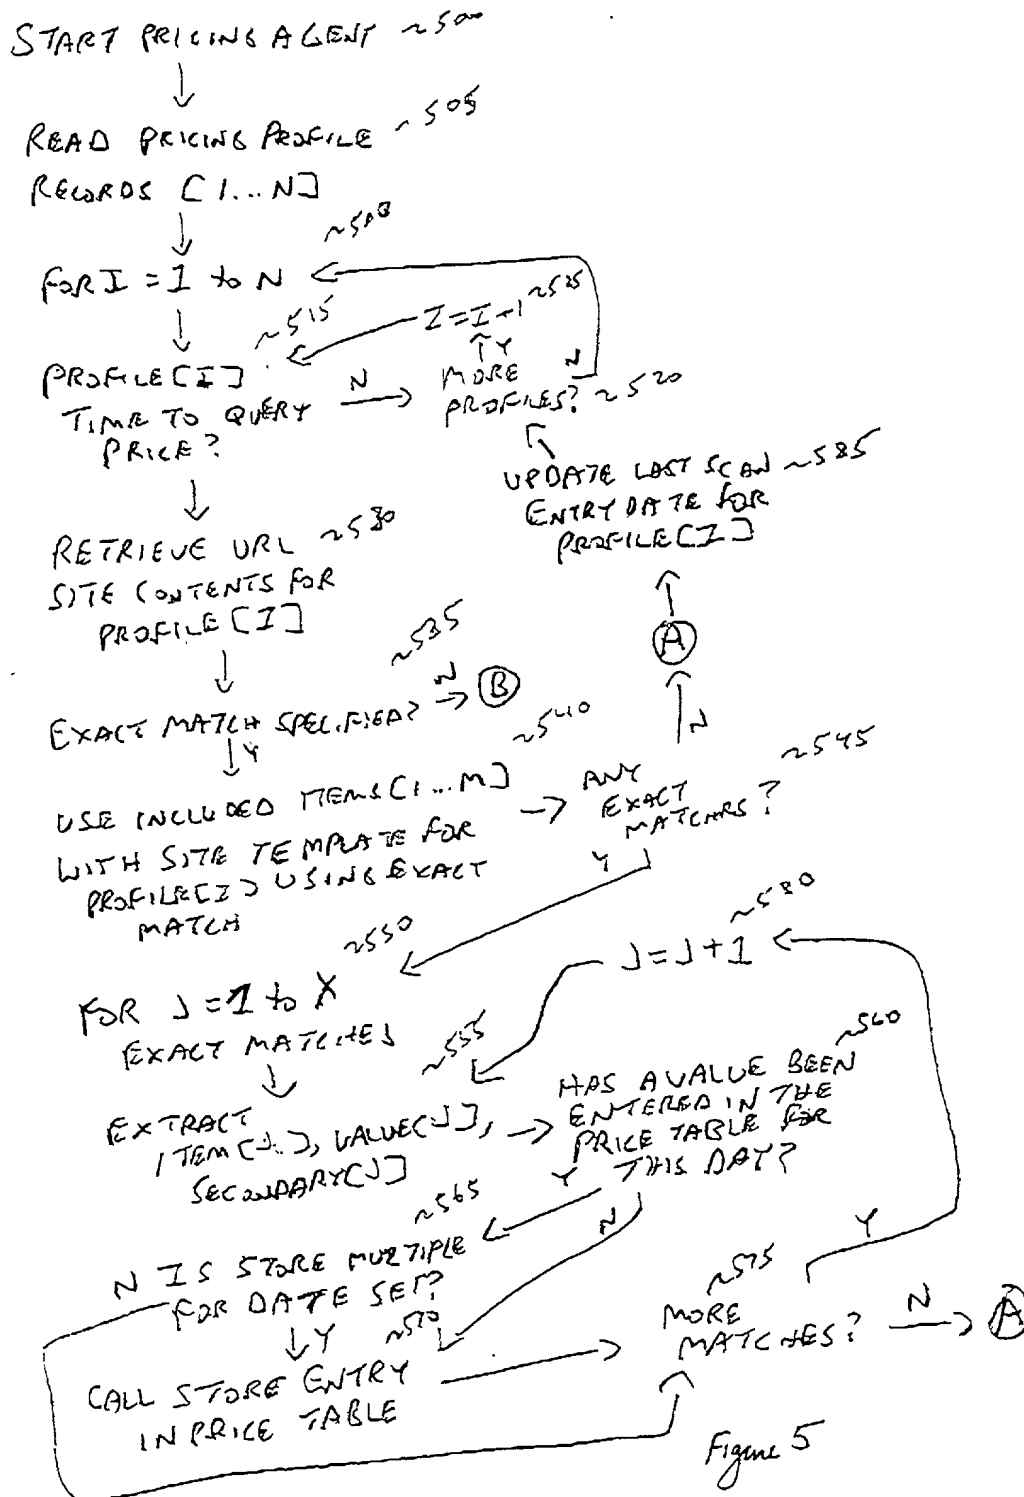 START PRICING AGENT ~500
READ PRICING PROFILE ~505
RECORDS [1...N]
~508
FOR I = 1 to N
I=I+1 ~525
~515
Y
N
PROFILE[I]
TIME TO QUERY
PRICE?
N
MORE
PROFILES? ~520
UPDATE LAST SCAN ~585
ENTRY DATE FOR
PROFILE[I]
RETRIEVE URL ~530
SITE CONTENTS FOR
PROFILE[I]
A
~535
N
B
N
EXACT MATCH SPECIFIED?
Y
~540
~545
USE INCLUDED ITEMS[1...M]
WITH SITE TEMPLATE FOR
PROFILE[I] USING EXACT
MATCH
ANY
EXACT
MATCHES?
Y
~550
~580
J=J+1
FOR J = 1 to X
EXACT MATCHES
~555
~560
EXTRACT
ITEM[J], VALUE[J],
SECONDARY[J]
HAS A VALUE BEEN
ENTERED IN THE
PRICE TABLE FOR
THIS DAY?
Y
~565
N
N IS STORE MULTIPLE
FOR DATE SET?
Y
~570
~575
Y
MORE
MATCHES?
N
A
CALL STORE ENTRY
IN PRICE TABLE
Figure 5